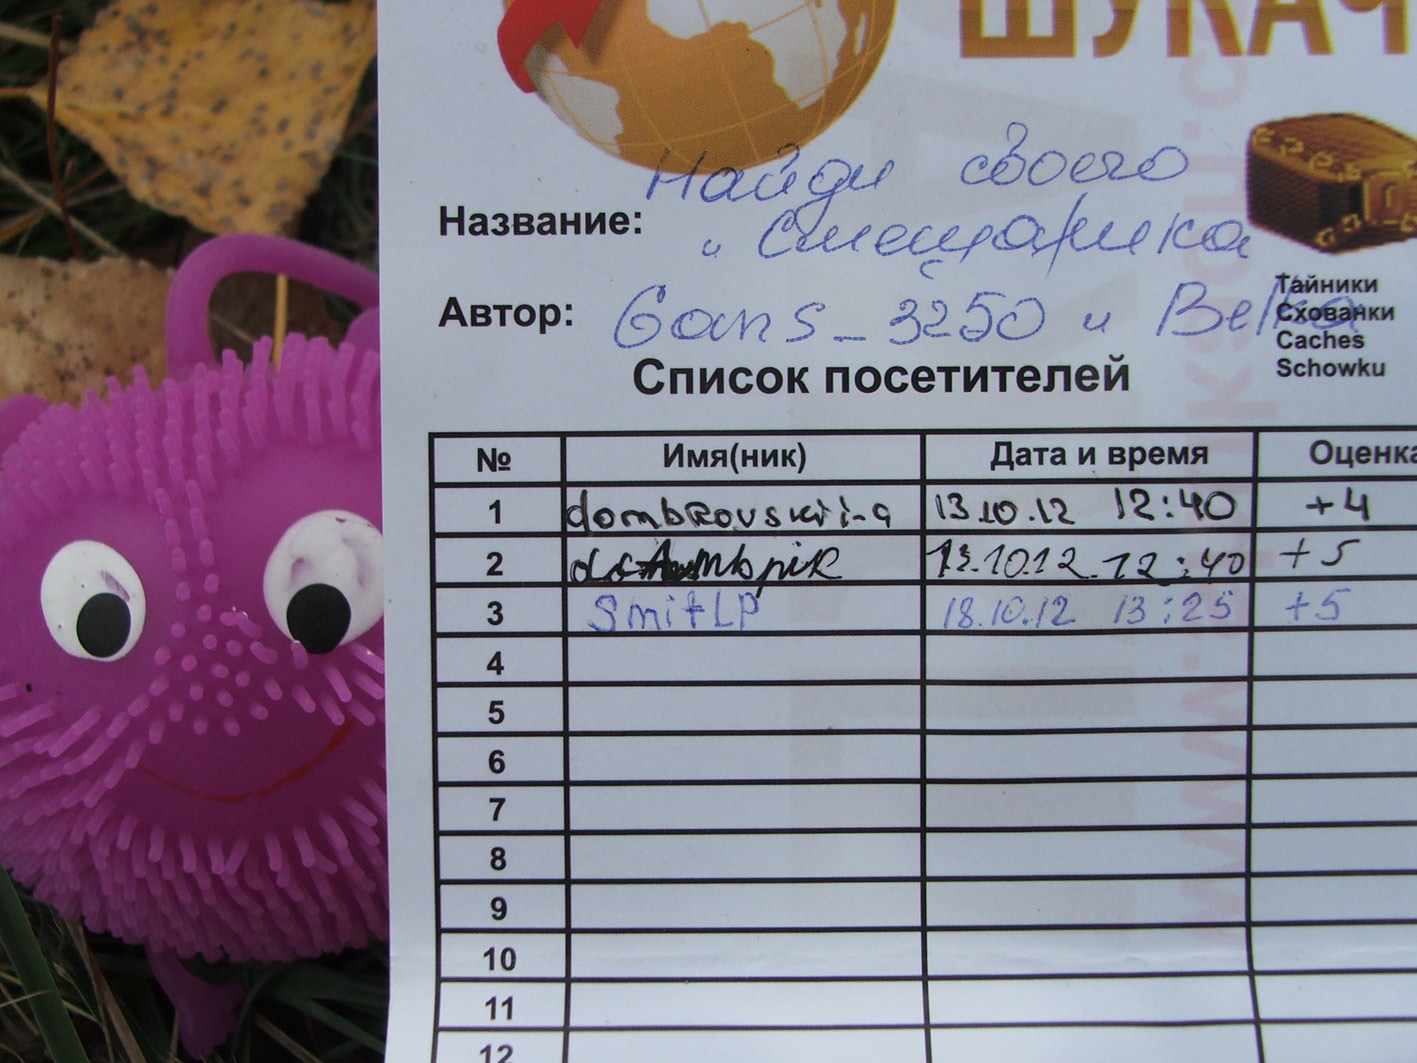 ШУКАЧ
Найди своего
Название: "Смешарика
Автор: Gans_3250 и Belka
Тайники
Схованки
Caches
Schowku
Список посетителей
№ Имя(ник) Дата и время Оценка
1 dombrovskii-a 13.10.12 12:40 +4
2 13.10.12 12:40 +5
3 SmitLP 18.10.12 13:25 +5
4
5
6
7
8
9
10
11
12